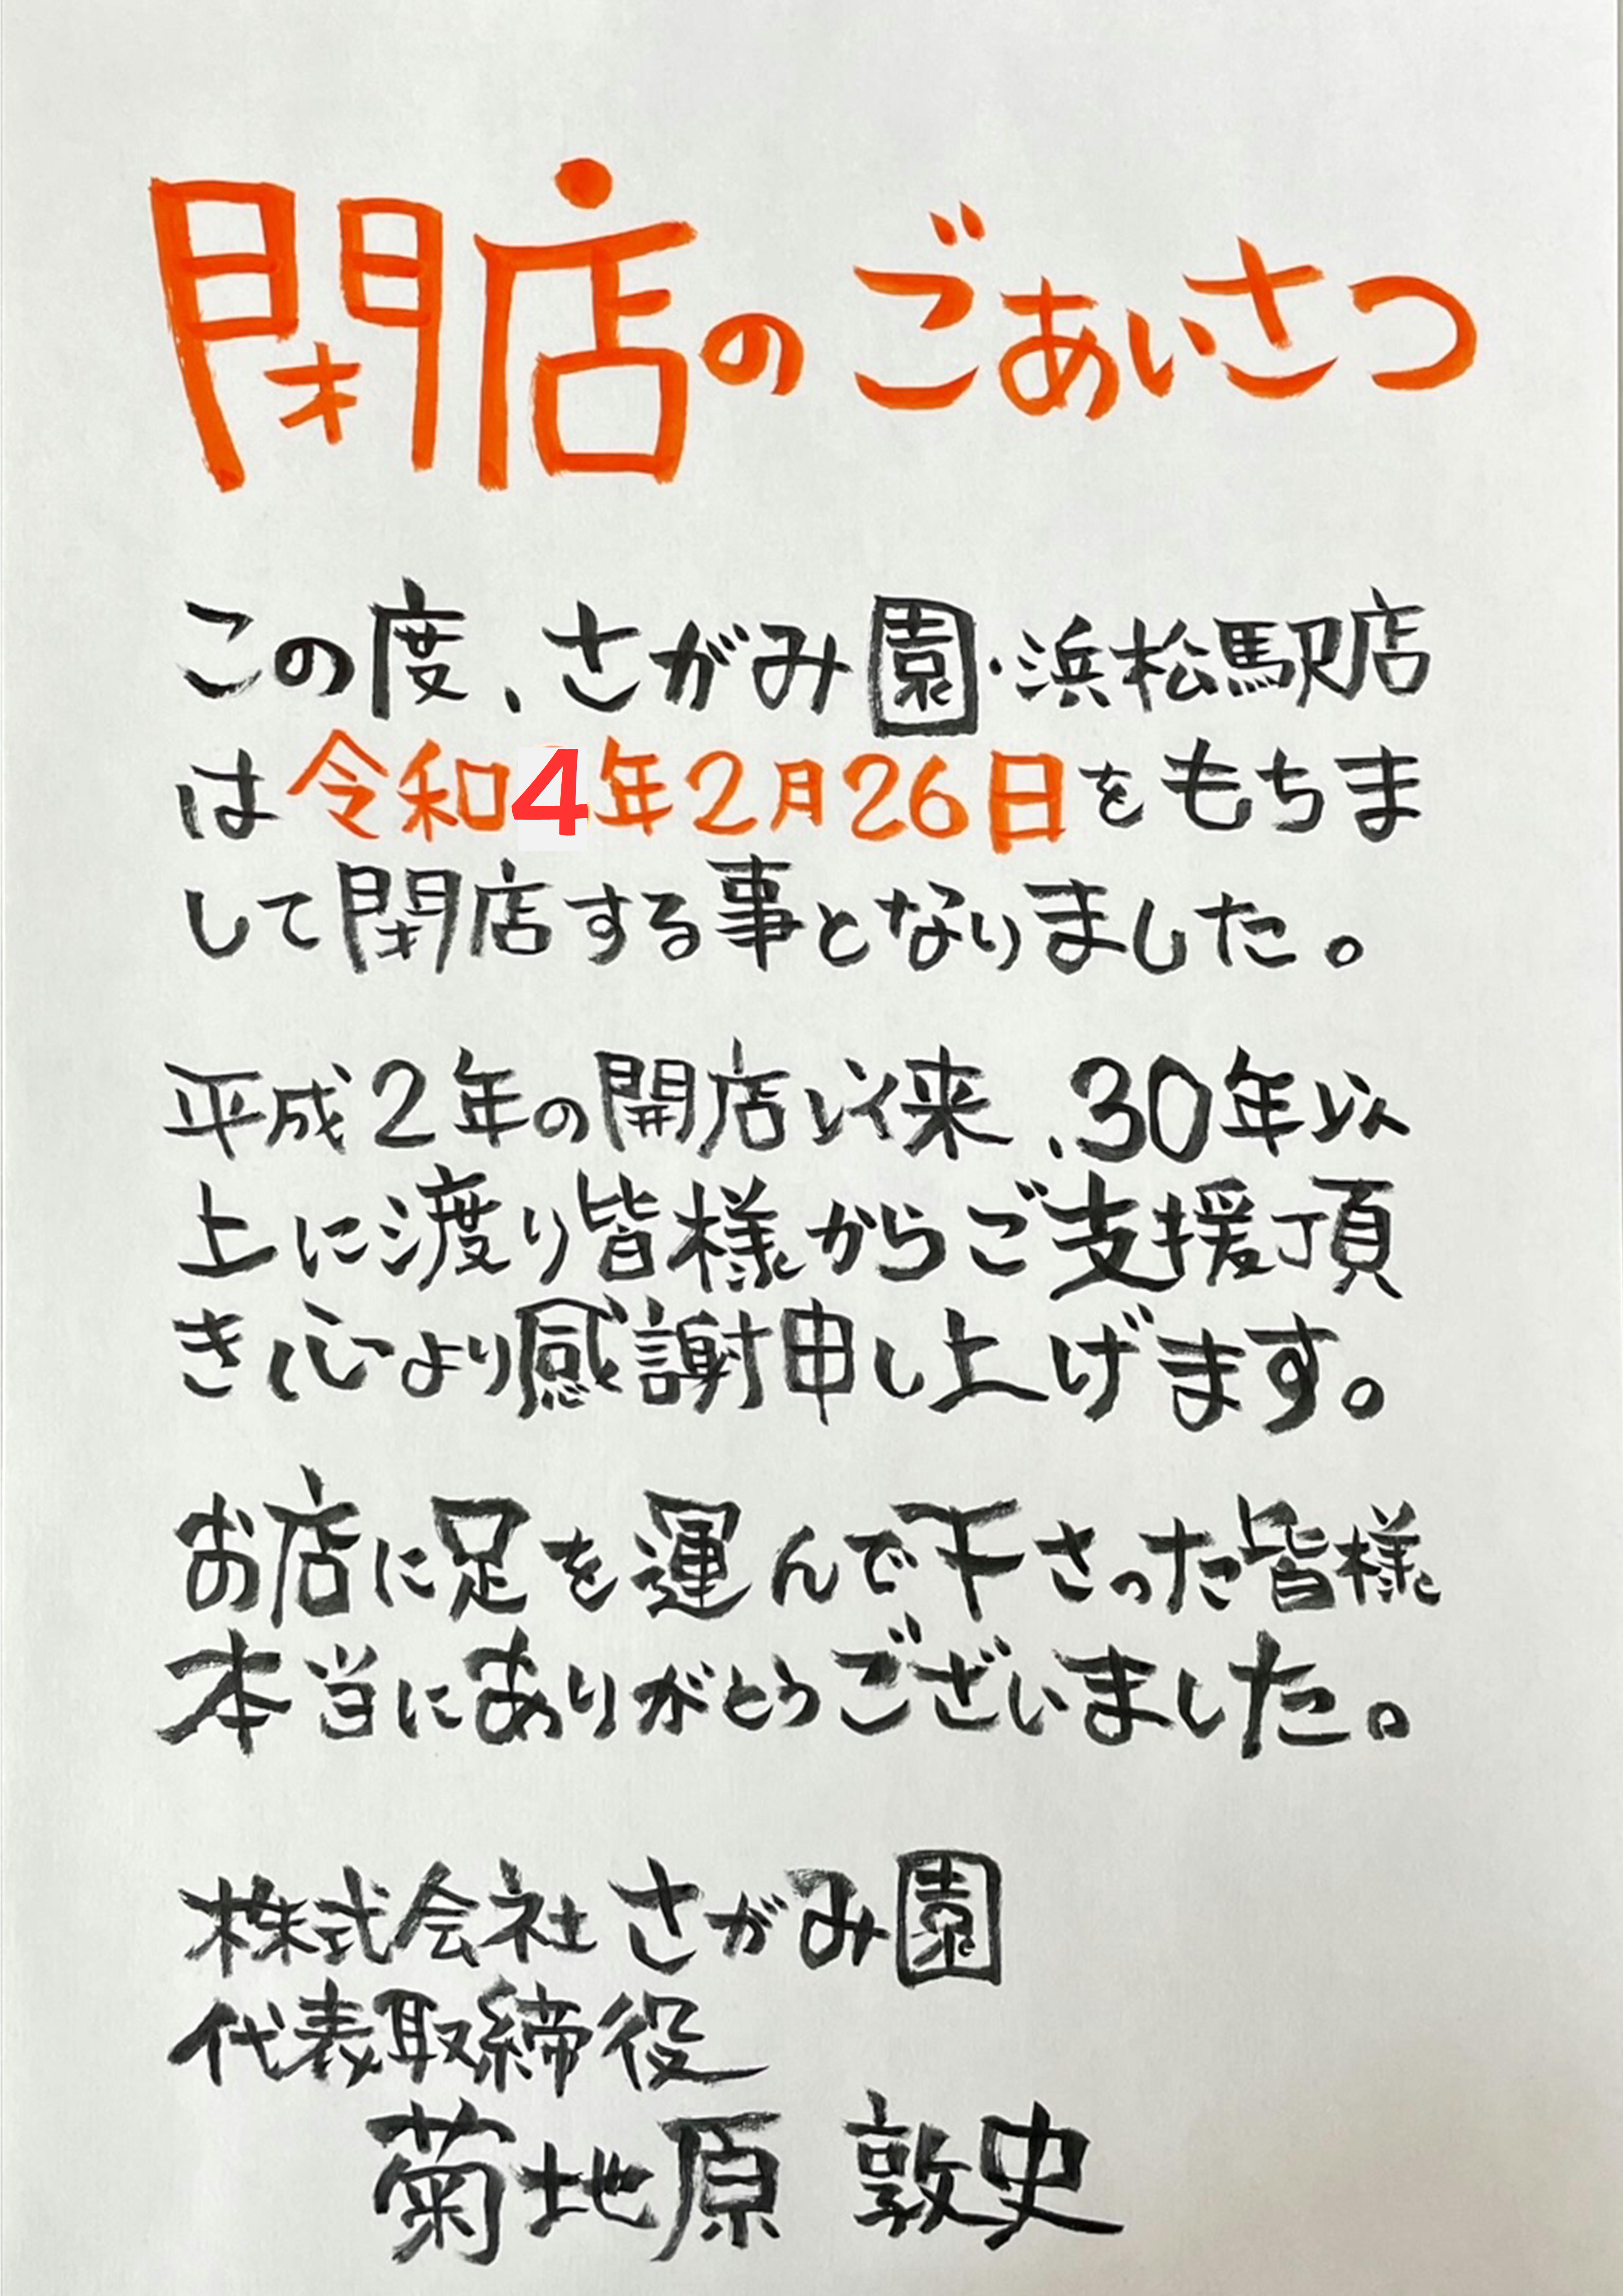 閉店のごあいさつ
この度、さがみ園・浜松駅店
は令和4年2月26日をもちま
して閉店する事となりました。
平成2年の開店以来、30年以
上に渡り皆様からご支援頂
き心より感謝申し上げます。
お店に足を運んで下さった皆様
本当にありがとうございました。
株式会社さがみ園
代表取締役
菊地原 敦史